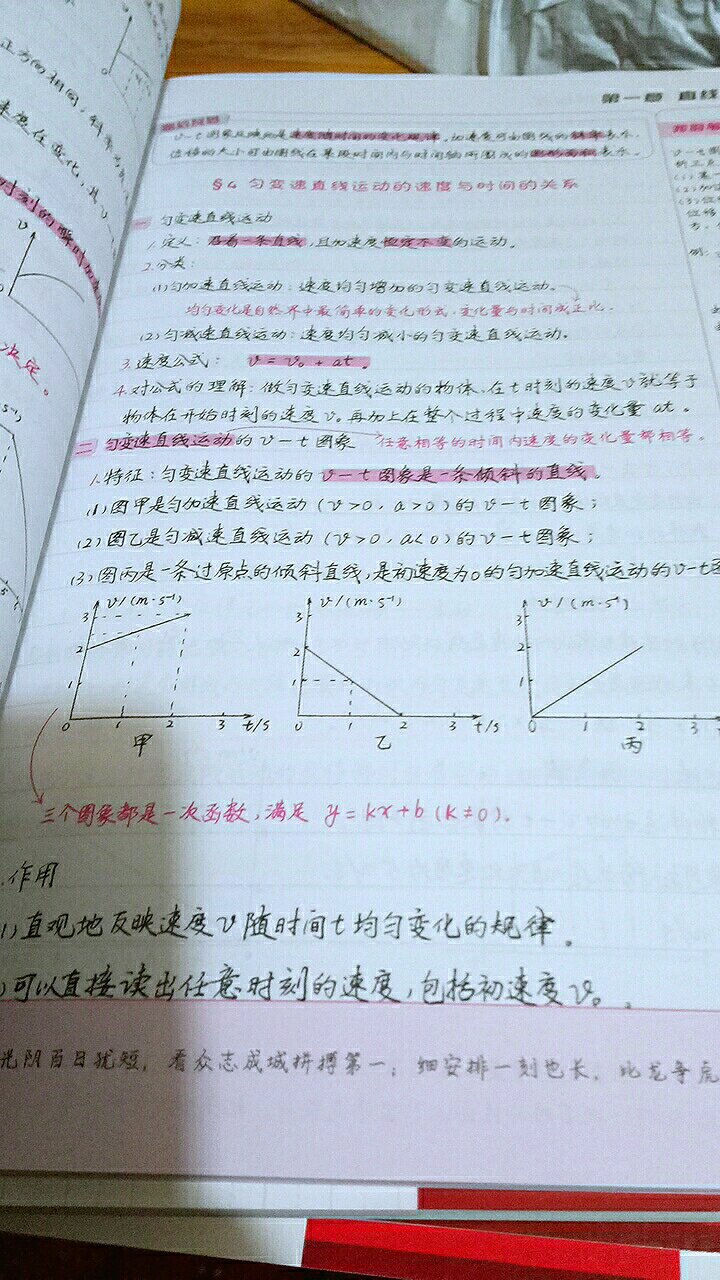 第一章 直线
v-t图象反映的是速度随时间的变化规律,加速度可由图线的斜率表示,
位移的大小可由图线在某段时间内与时间轴所围成的图形面积表示。
§4 匀变速直线运动的速度与时间的关系
一 匀变速直线运动
1.定义:沿着一条直线,且加速度恒定不变的运动。
2.分类:
(1)匀加速直线运动:速度均匀增加的匀变速直线运动。
均匀变化是自然界中最简单的变化形式,变化量与时间成正比.
(2)匀减速直线运动:速度均匀减小的匀变速直线运动。
3.速度公式: v = v₀ + at 。
4.对公式的理解:做匀变速直线运动的物体,在t时刻的速度v就等于
物体在开始时刻的速度v₀再加上在整个过程中速度的变化量at。
二 匀变速直线运动的v-t图象 任意相等的时间内速度的变化量都相等。
1.特征:匀变速直线运动的v-t图象是一条倾斜的直线。
(1)图甲是匀加速直线运动(v>0,a>0)的v-t图象;
(2)图乙是匀减速直线运动(v>0,a<0)的v-t图象;
(3)图丙是一条过原点的倾斜直线,是初速度为0的匀加速直线运动的v-t图
v/(m·s⁻¹) v/(m·s⁻¹) v/(m·s⁻¹)
3 3 3
2 2 2
1 1 1
0 1 2 3 t/s 0 1 2 3 t/s 0 1 2 3
甲 乙 丙
三个图象都是一次函数,满足 y=kx+b(k≠0).
.作用
1)直观地反映速度v随时间t均匀变化的规律。
)可以直接读出任意时刻的速度,包括初速度v₀。
光阴百日犹短,看众志成城拼搏第一;细安排一刻也长,比龙争虎
正方向相同,斜率
速度在变化,其
时刻的瞬时加
决定。
v-t图
(1)某一
(2)加
(3)位
位移
例: